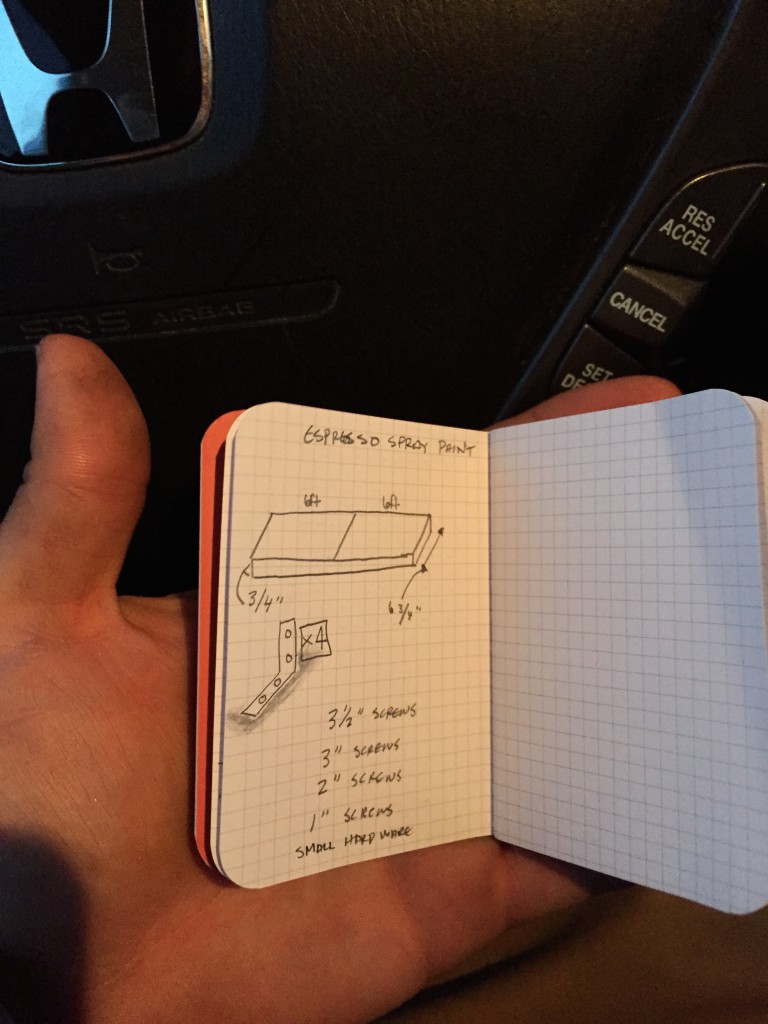 RES
ACCEL
CANCEL
SET
DE
SRS AIRBAG
ESPRESSO SPRAY PAINT
6ft 6ft
3/4"
6 3/4"
×4
3 1/2" SCREWS
3" SCREWS
2" SCREWS
1" SCREWS
SMALL HARDWARE